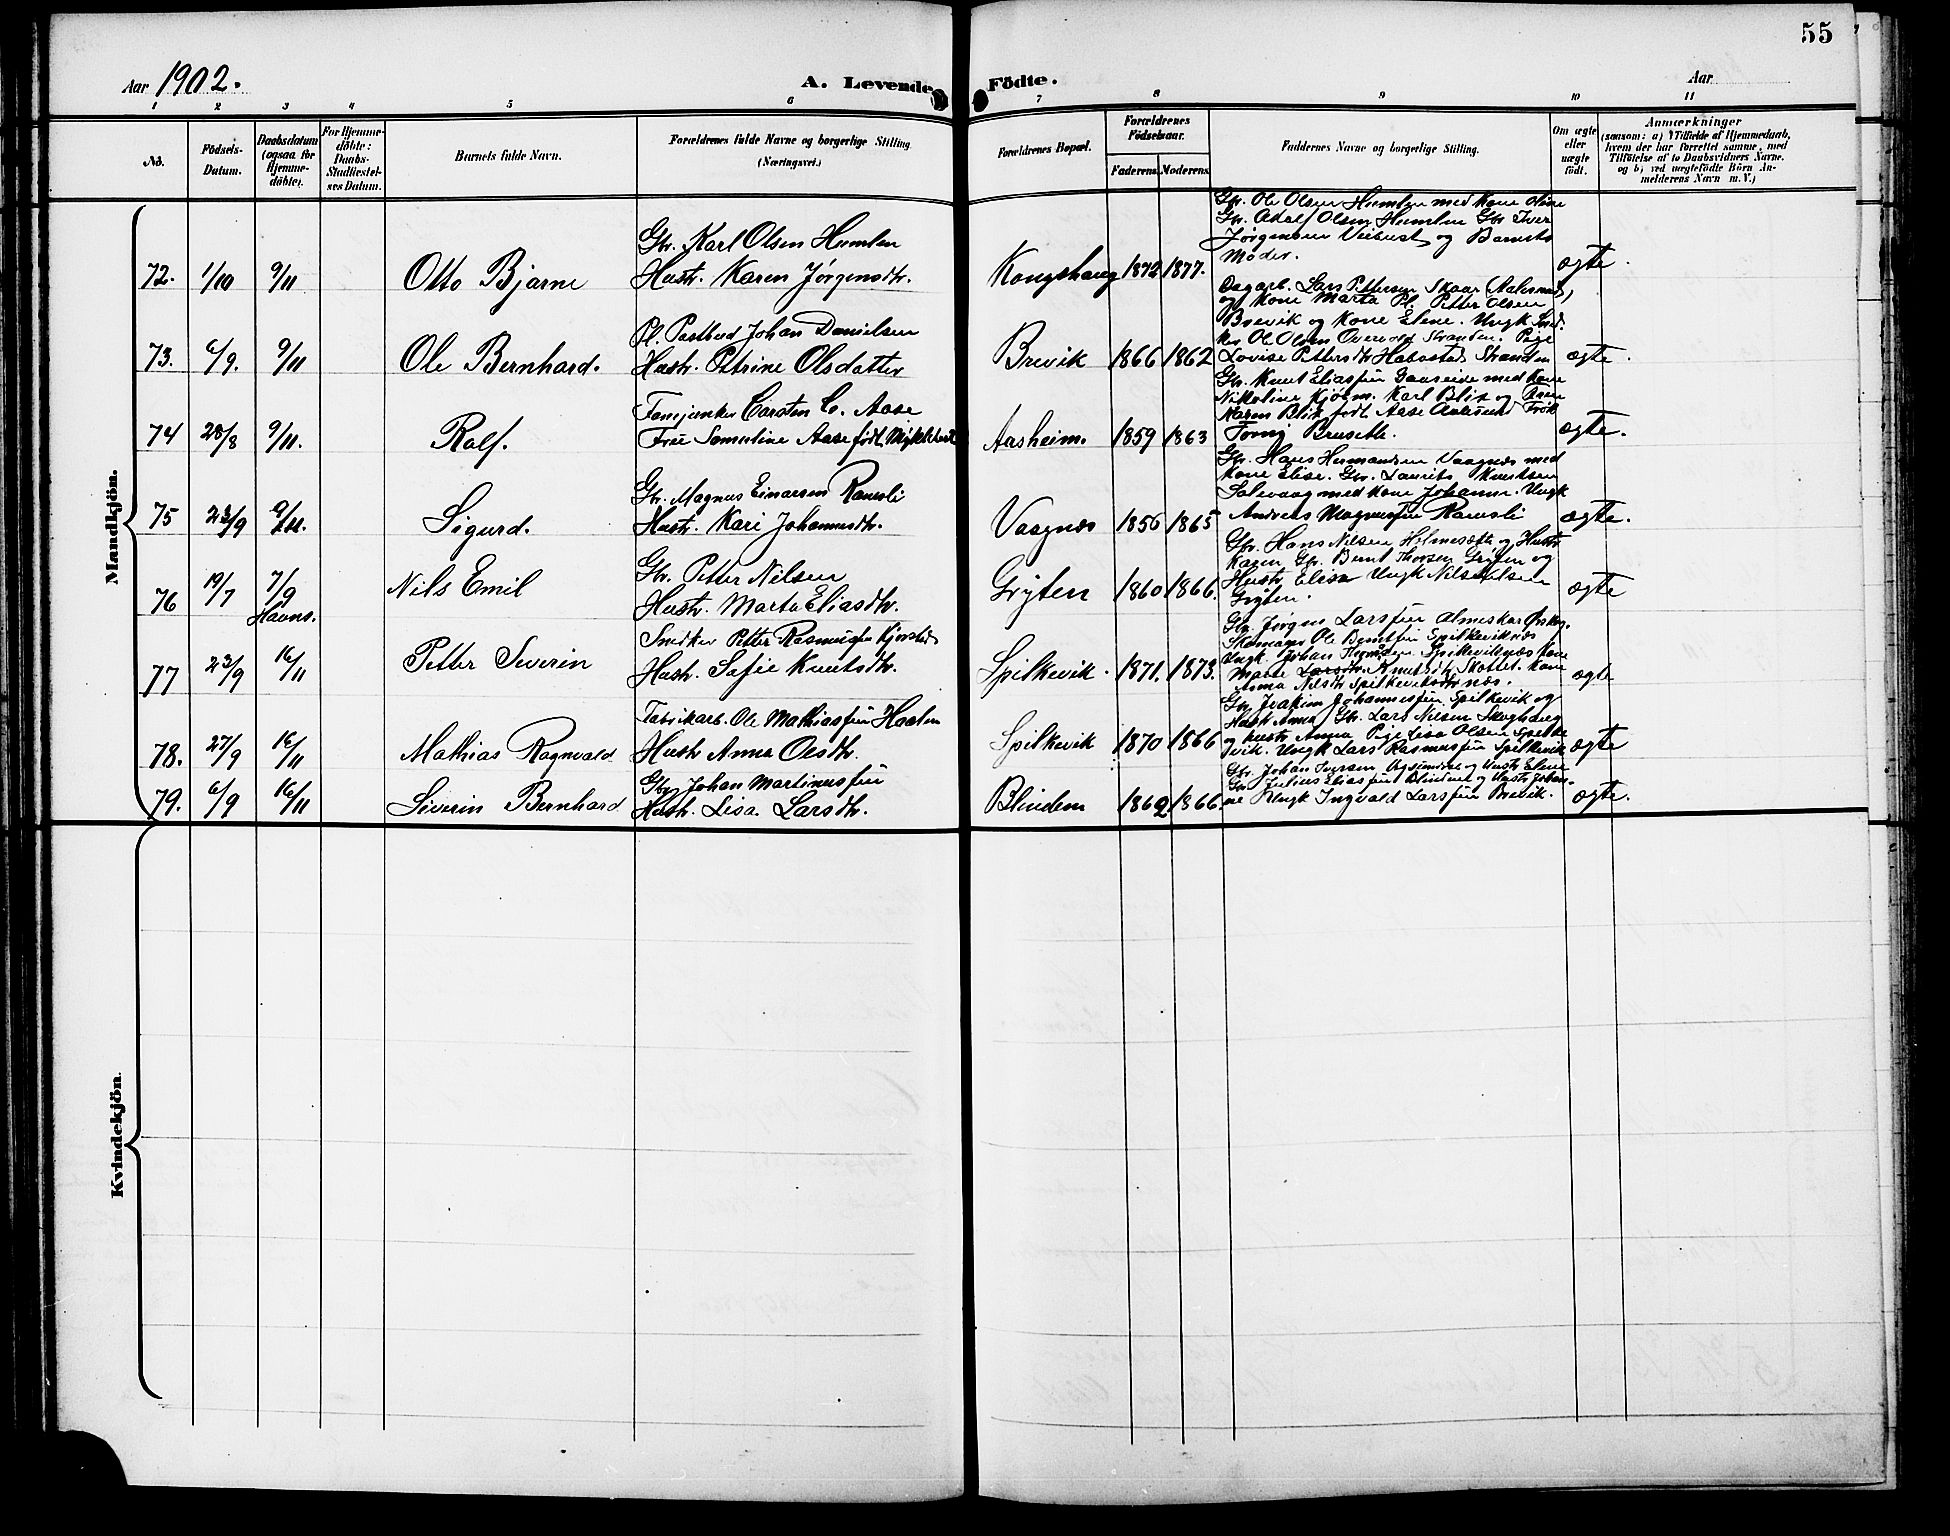 55
Aar 1902.
A. Levende Födte.
Aar
1 2 3 4 5 6 7 8 9 10 11
No.
Födsels-Datum.
Daabsdatum (ogsaa for Hjemme-döbte).
For Hjemme-döbte: Daabs-Stadfæstel-ses Datum.
Barnets fulde Navn.
Forældrenes fulde Navne og borgerlige Stilling (Næringsvei.)
Forældrenes Bopæl.
Forældrenes Födselsaar.
Faderens. Moderens.
Faddernes Navne og borgerlige Stilling.
Om ægte eller uægte födt.
Anmærkninger
(saasom: a) i Tilfælde af Hjemmedaab,
hvem der har forrettet samme, med
Tilföielse af to Daabsvidners Navne.
og b) ved uægtefödte Börn An-
melderens Navn m. V.)
Mandkjön.
72. 1/10 9/11 Otto Bjarne
Gbr. Karl Olsen Humlen
Hustr. Karen Jørgensdtr.
Kongshaug 1872 1877.
Gbr. Ole Olsen Humlen med Kone Oline
Gbr. Adolf Olsen Humlen Gbr Iver
Jørgensen Veibust og Barnets
Moder.
ægte.
73. 6/9. 9/11 Ole Bernhard.
Pl. Postbud Johan Danielsen
Hustr. Petrine Olsdatter
Brevik 1866 1862
Dagarb. Lars Pettersen Skaar (Aalesund)
og Kone Marta Pl. Petter Olsen
Brevik og Kone Elene. Ungk Sned.
ker Ole Olsen Overvold Stranden. Pige
Lovise Pettersdtr Habostad Stranden
ægte.
74 28/8 9/11. Ralf.
Fanejunker Carsten C. Aase
Frue Samueline Aase født
Aasheim. 1859 1863
Gbr. Knut Eliassen Gaaseide med Kone
Nikoline Kjølm. Karl Blix og Frue
Karen Blix født Aase Aalesund Frøk
ægte.
75 23/9 9/11. Sigurd.
Gbr. Magnus Einarsen Ramsli
Hustr. Kari Johannesdtr.
Vaagnæs 1856 1865
Gbr. Hans Hermandsen Vaagnæs med
Kone Elise. Gbr. Laurits Knutsen
Solevaag med Kone Johanne. Ungk
Andreas Magnussen Ramsli
ægte.
76 19/7 7/9 Havns. Nils Emil
Gbr. Petter Nilsen
Hustr. Marta Eliasdtr.
Gryten 1860 1866.
Gbr. Hans Nilsen Holmesæte og Hustr
Karen Gbr. Bernt Thorsen Gryten og
Hustr Elisa Ungk Nils Nilsen
Gryten.
ægte
77 23/9 16/11 Petter Severin
Snedker Petter Rasmussen
Hustr. Sofie Knutsdtr.
Spilkevik. 1871. 1873.
Gbr. Jørgen Larssen Almeskar Ørskog.
Skomager Ole Berntsen Spilkeviknæs
Ungk. Johan Spilkeviknæs Kone
Marte Larsdtr. Knutsdtr Skottet. Kone
Anna Nilsdtr Spilkeviksnæs.
ægte
78. 27/9 16/11 Mathias Ragnvald
Fabrikarb. Ole Mathiassen Haslen
Hustr Anna Olsdtr.
Spilkevik 1870 1866
Gbr. Joakim Johannessen Spilkevik og
Hustr Anna Gbr. Lars Nilsen Skoghaug
og hustr Anna Pige Lisa Olsen Spilke
vik. Ungk Lars Rasmussen Spilkevik
ægte
79. 6/9 16/11 Severin Bernhard
Gbr. Johan Martinussen
Hustr. Lisa. Larsdtr.
Blindem 1862 1866.
Gbr. Johan Iversen og Hustr Elene
Gbr. Julius Eliassen Blindem og Hustr Johan-
ne Ungk Ingvald Larssen Brevik.
ægte.
Kvindekjön.